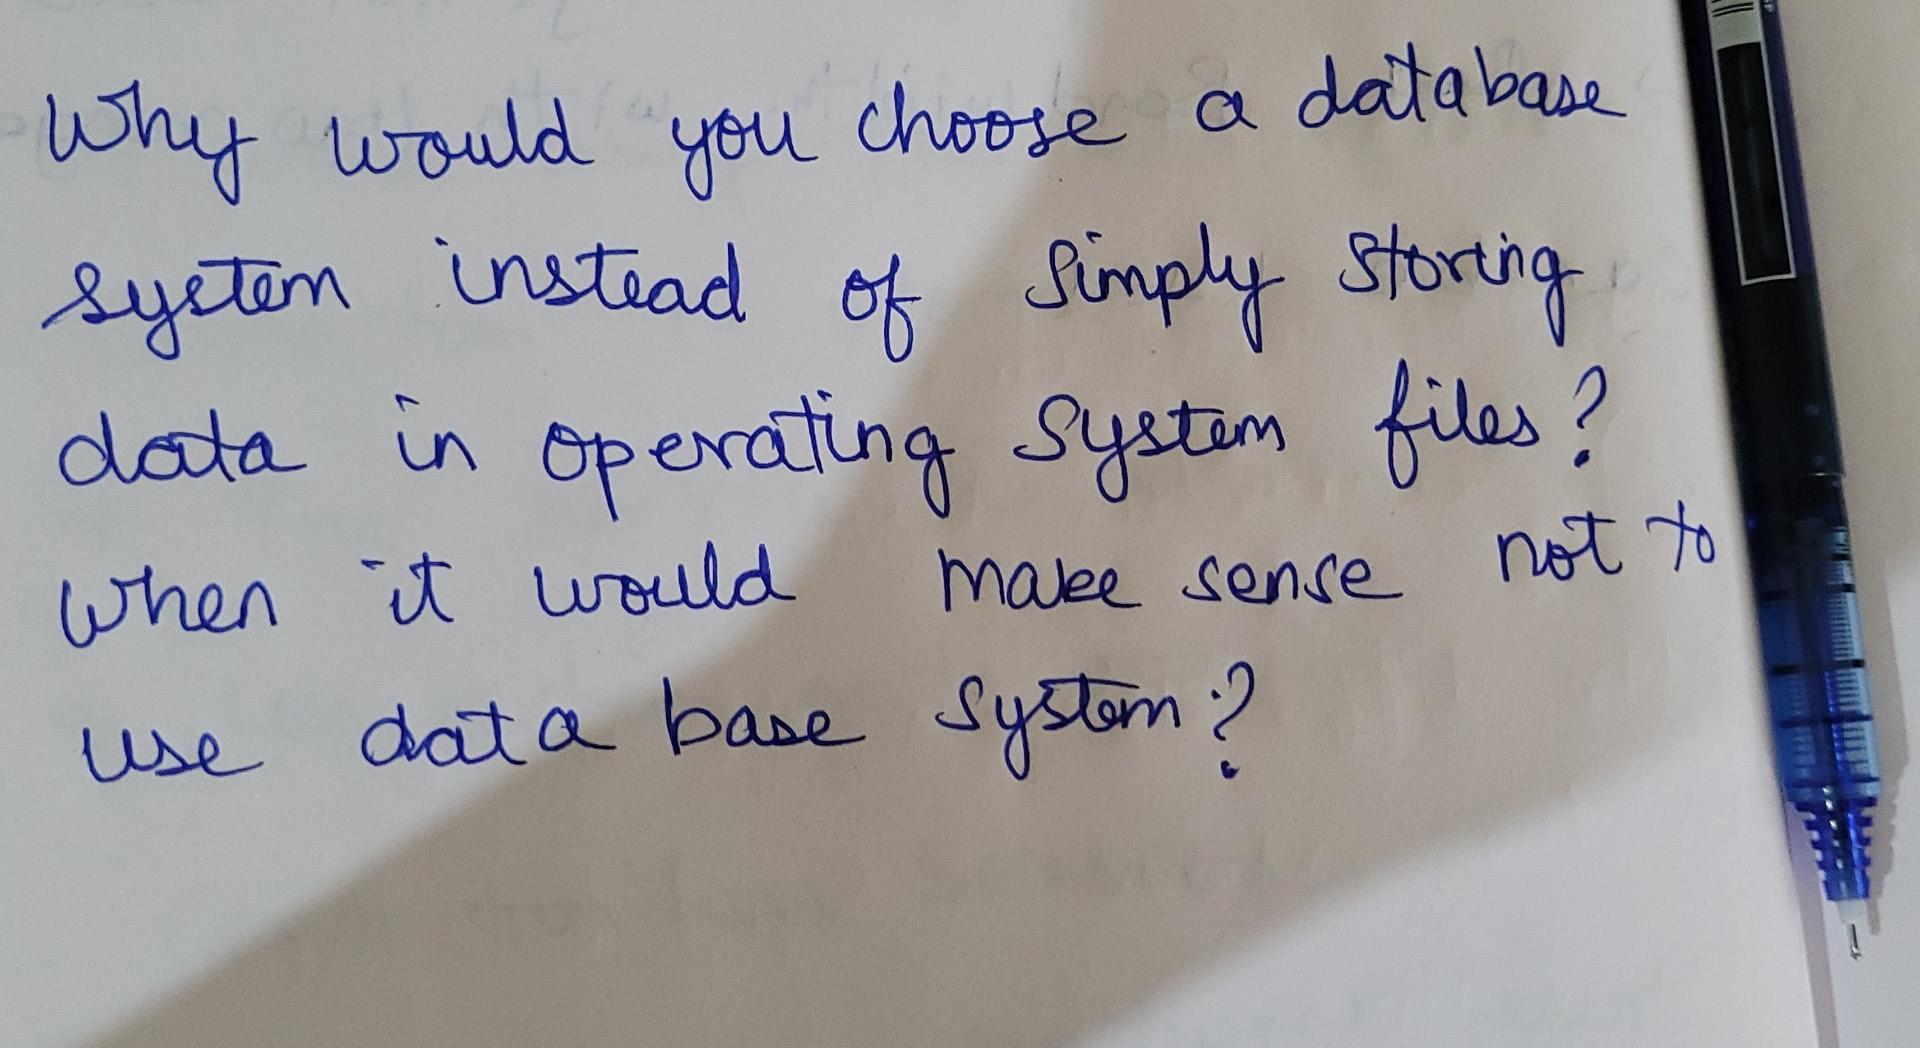 Why would you choose a database
system instead of simply storing
data in operating system files?
When it would make sense not to
use data base system?